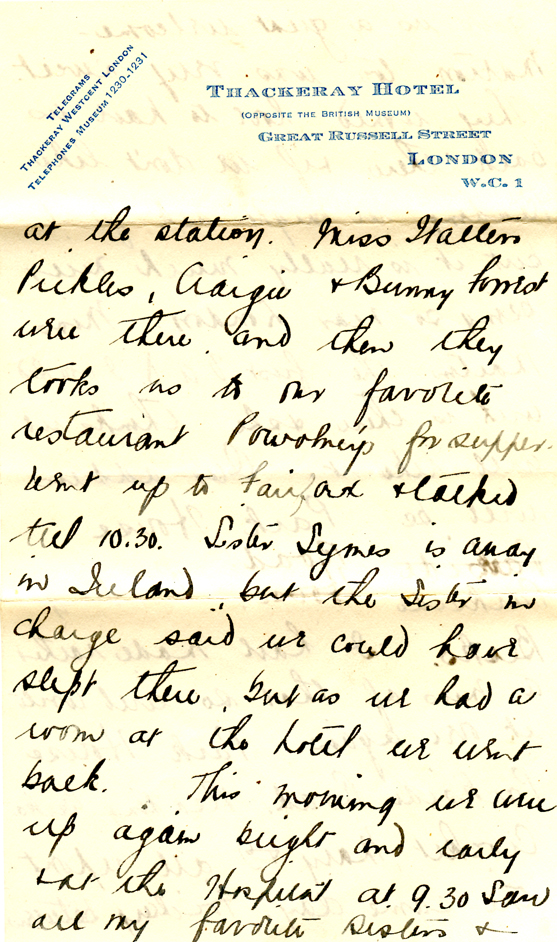 Telegrams
Thackeray Westcent London
Telephones Museum 1230-1231
Thackeray Hotel
(Opposite the British Museum)
Great Russell Street
London
W.C. 1
at the station. Miss Walters
Pickles, Craigie & Bunny Forrest
were there and then they
tooks us to our favorite
restaurant Powolnys for supper.
Went up to Fairfax & talked
till 10.30. Sister Symes is away
in Ireland, but the Sister in
charge said we could have
slept there, but as we had a
room at the hotel we went
back. This morning we were
up again bright and early
& at the Hospital at 9.30 Saw
all my favorite Sisters &